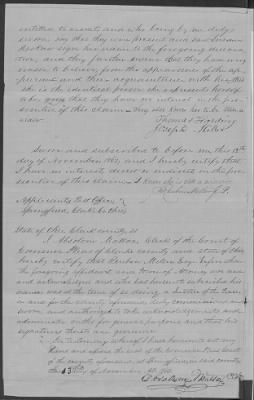 entitled to credit and who being by me duly
sworn, say that they were present and saw
sign his name to the foregoing declara
tion, and they further swear that they have every
reason to believe, from the appearance of the ap
plicant and their acquaintance with her that
she is the identical person she represents herself
to be, and that they have no interest in the pro
secution of this claim
Thomas Harding
Joseph
Sworn and subscribed before me this 13th
day of November 1862, and I hereby certify that
I have no interest, direct or indirect in the prose
cution of this claim
J.P.
Applicants Post Office
Springfield Clark Co. Ohio
State of Ohio Clark County ss
I Absalom Mattox Clerk of the Court of
Common Pleas of said County and State of Ohio
hereby certify that Reuben Miller Esq. before whom
the foregoing affidavit and Power of Attorney were made
and acknowledged and who has hereunto subscribed his
name was at the time of so doing a Justice of the Peace
in and for the county aforesaid, duly commissioned and
sworn, and authorized to take acknowledgments and
administer oaths for general purposes and that his
signatures thereto are genuine
In testimony whereof I have hereunto set my
Hand and affixed the seal of the Common Pleas Court
of the county aforesaid, at Springfield in said county
this 13th day of November AD 1862
Absalom Mattox Clerk